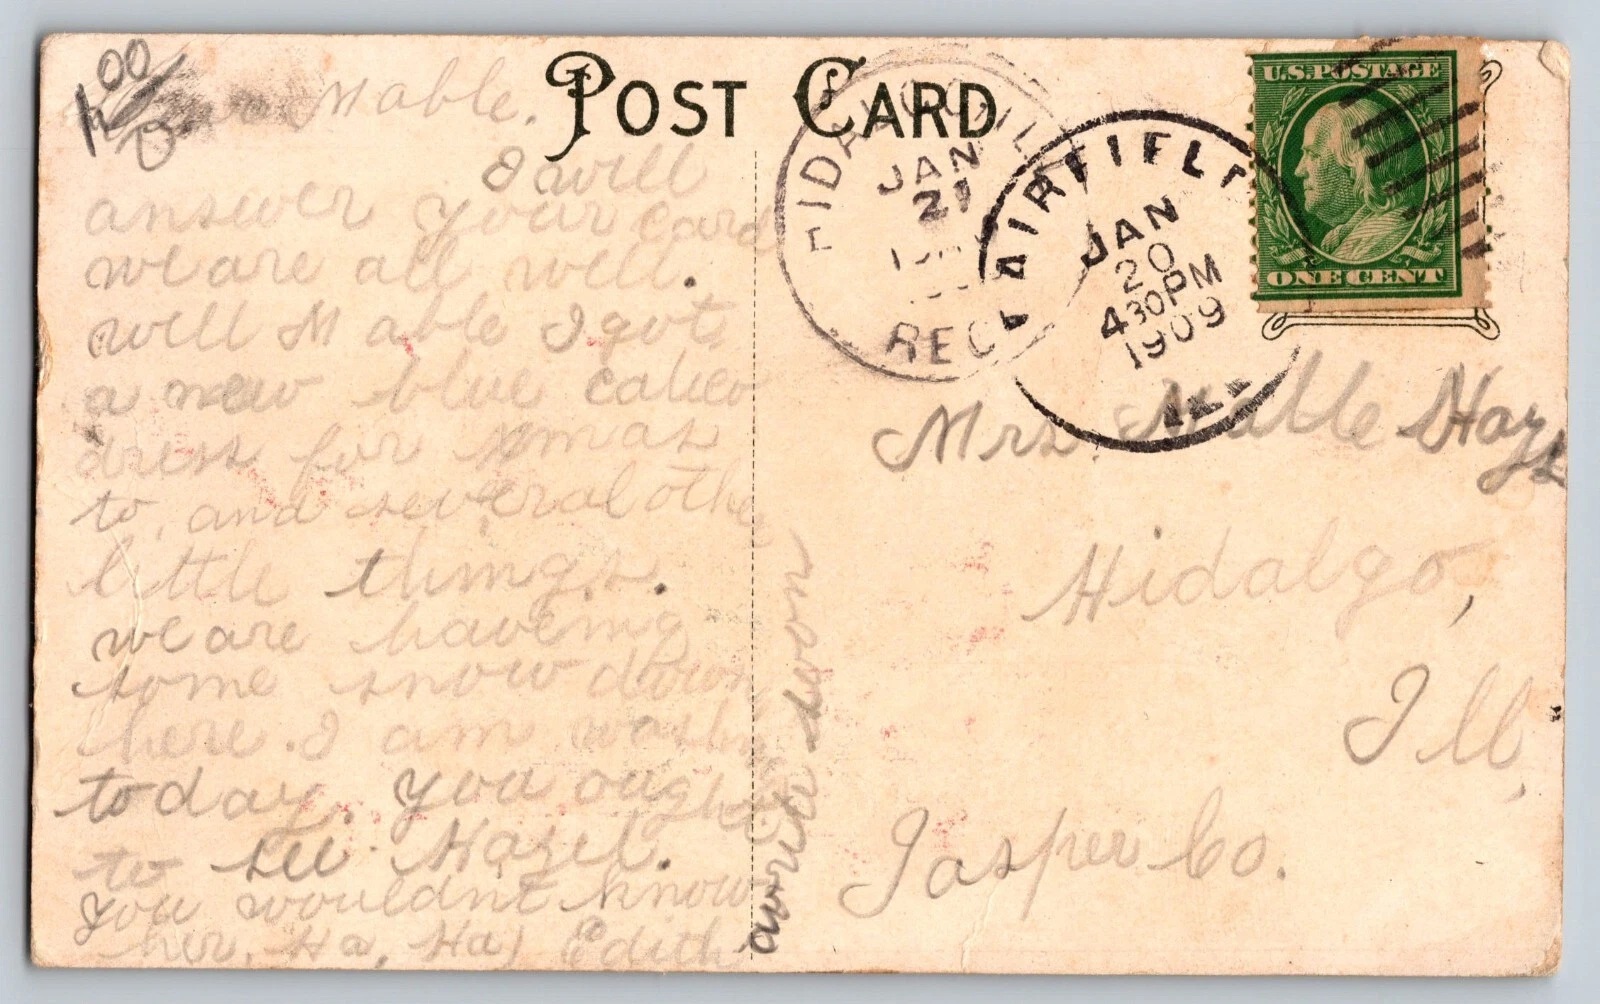 1.00
Dear Mable.
I will
answer your card
we are all well.
well Mable I got
a new blue calico
dress for Xmas
to, and several other
little things.
we are haveing
some snow down
here. I am washing
today. you ought
to see Hazel.
you wouldnt know
her, Ha, Ha, Edith
write soon
POST CARD
HIDALGO, ILL
JAN
21
REC'D
FAIRFIELD
JAN
20
430PM
1909
ILL
U.S. POSTAGE
ONE CENT
Mrs. Mable Hays
Hidalgo,
Ill,
Jasper Co.